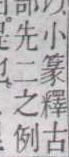 小篆釋古
部先二之例